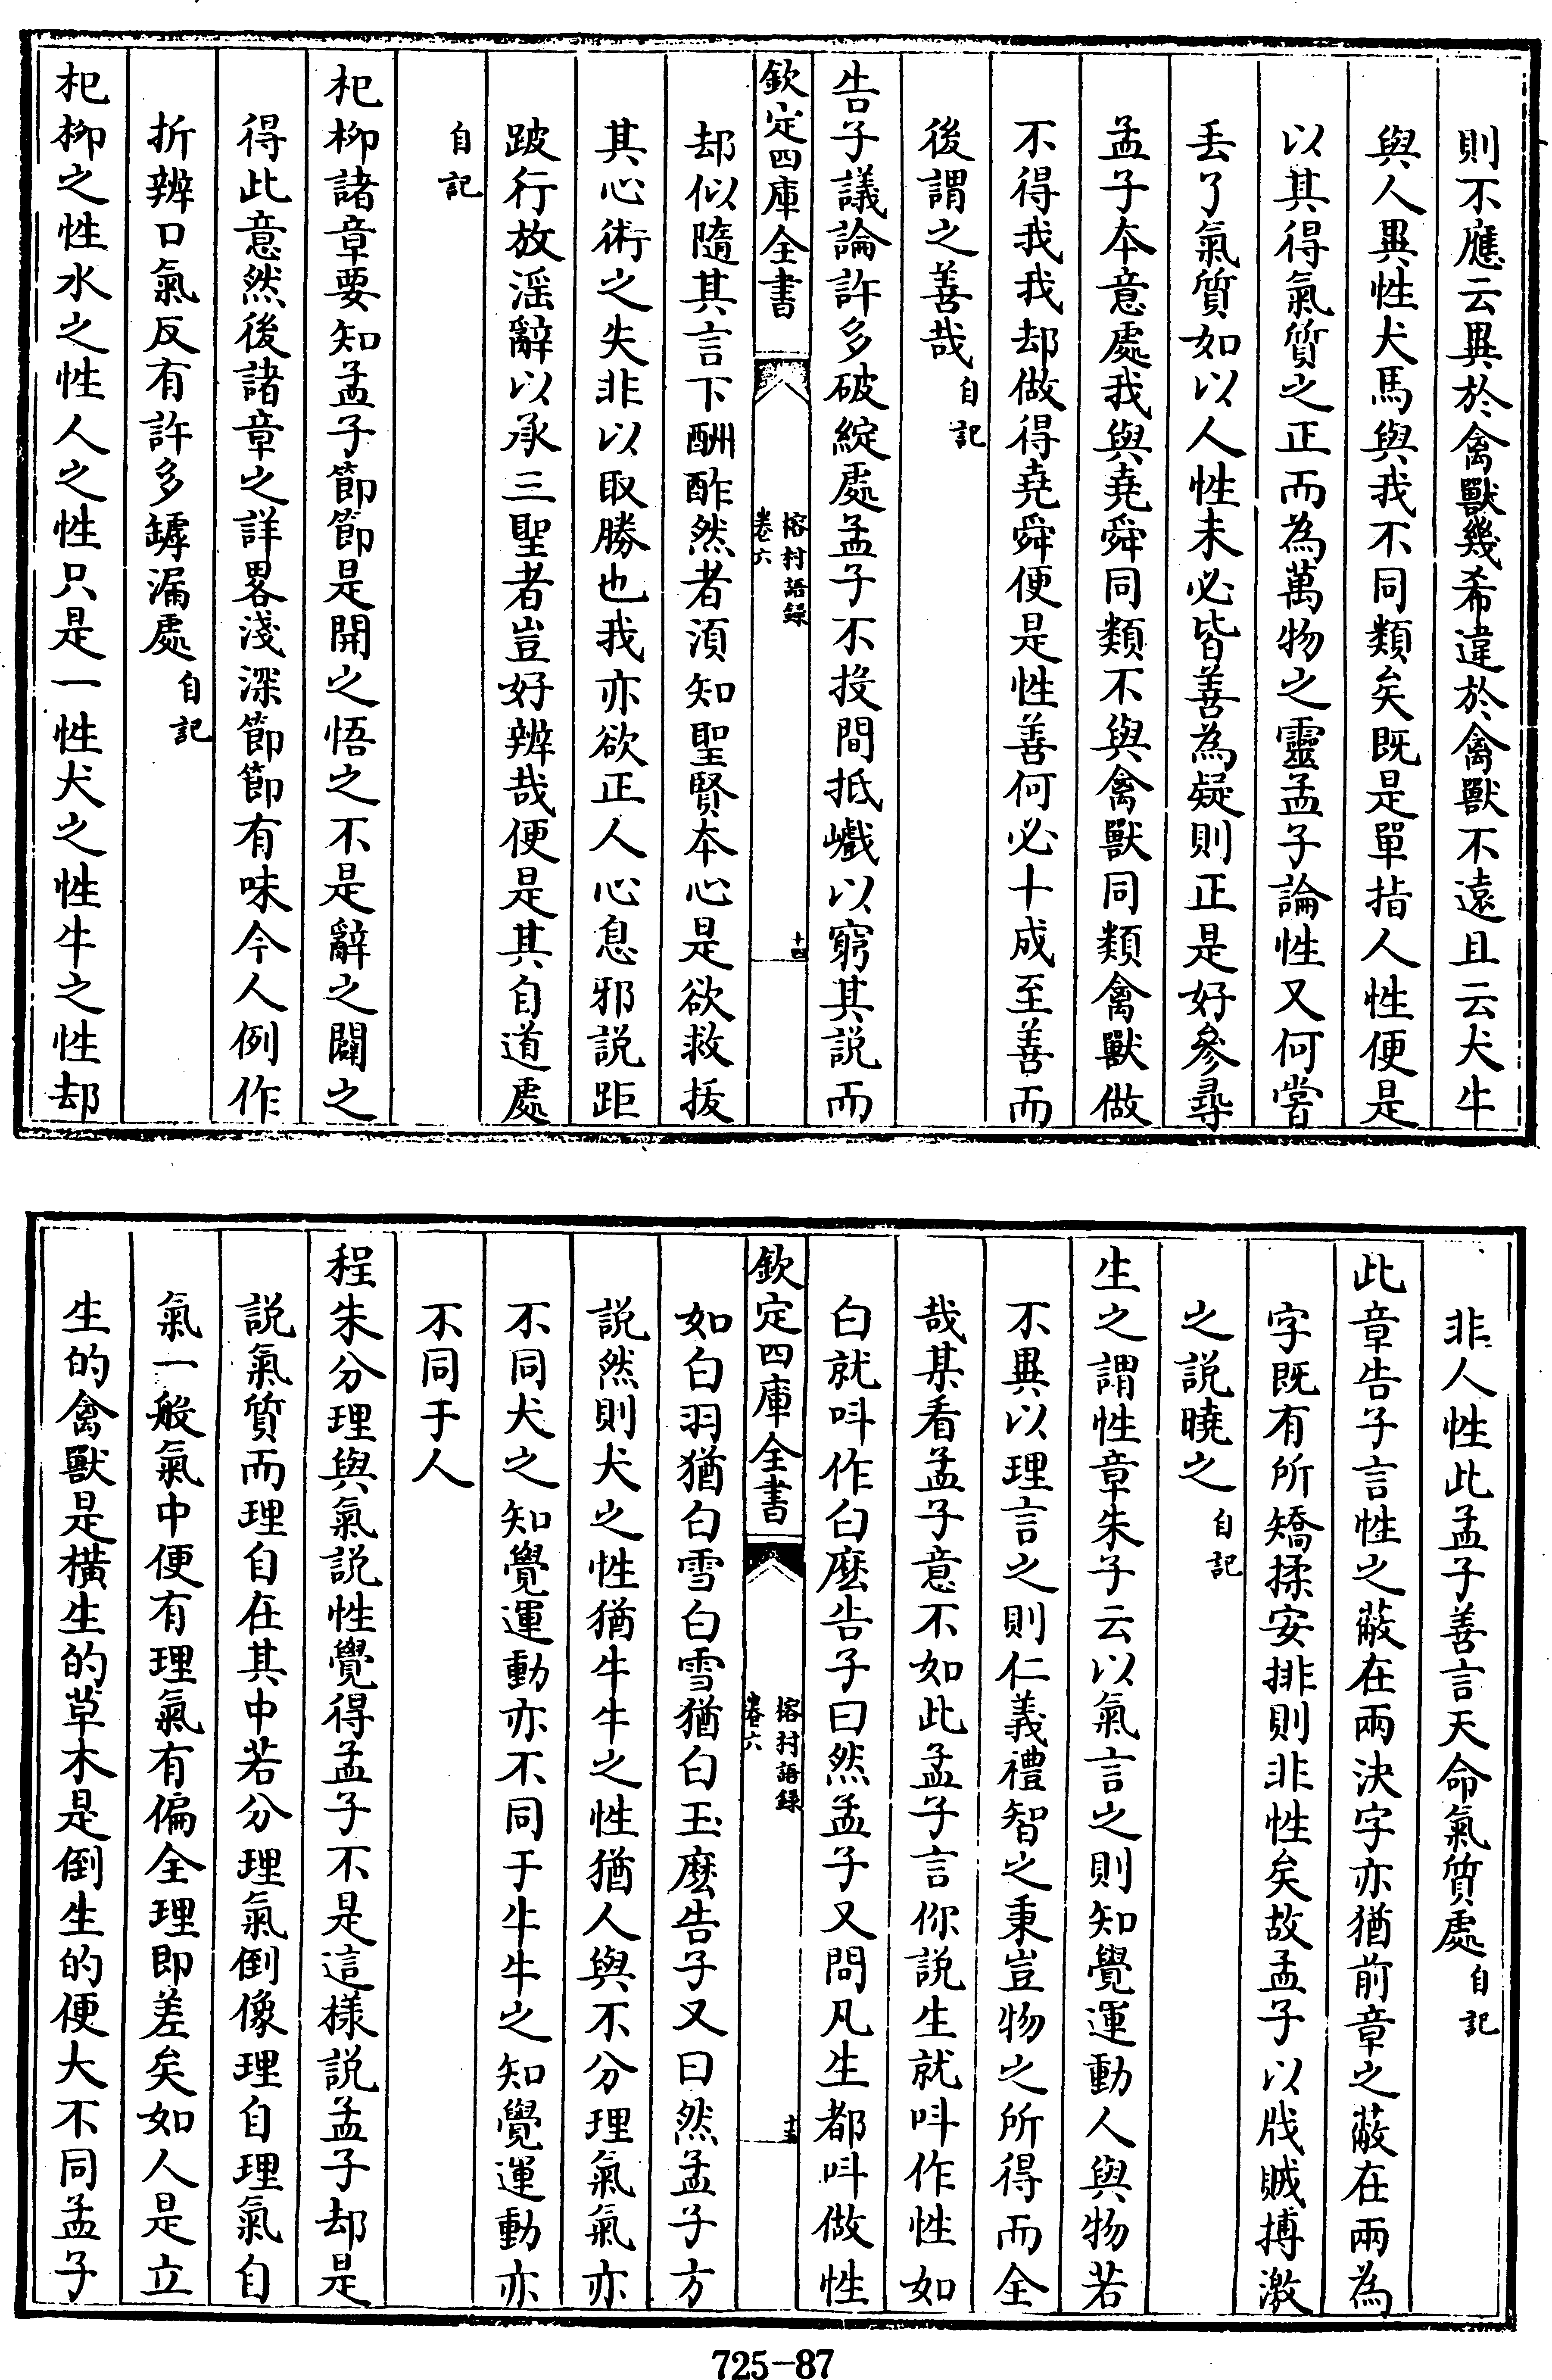 則不應云異於禽獸幾希違於禽獸不遠且云犬牛
與人異性犬馬與我不同類矣既是單指人性便是
以其得氣質之正而為萬物之靈孟子論性又何嘗
丢了氣質如以人性未必皆善為疑則正是好參尋
孟子本意處我與堯舜同類不與禽獸同類禽獸做
不得我我却做得堯舜便是性善何必十成至善而
後謂之善哉自記
告子議論許多破綻處孟子不投間抵巇以窮其説而
欽定四庫全書
榕村語錄
卷六
十四
却似隨其言下酬酢然者須知聖賢本心是欲救拔
其心術之失非以取勝也我亦欲正人心息邪説距
跛行放淫辭以承三聖者豈好辨哉便是其自道處
自記
杞栁諸章要知孟子節節是開之悟之不是辭之闢之
得此意然後諸章之詳畧淺深節節有味今人例作
折辨口氣反有許多罅漏處自記
杞栁之性水之性人之性只是一性犬之性牛之性却
非人性此孟子善言天命氣質處自記
此章告子言性之蔽在兩決字亦猶前章之蔽在兩為
字既有所矯揉安排則非性矣故孟子以戕賊搏激
之説曉之自記
生之謂性章朱子云以氣言之則知覺運動人與物若
不異以理言之則仁義禮智之秉豈物之所得而全
哉某看孟子意不如此孟子言你説生就呌作性如
白就呌作白麽告子曰然孟子又問凡生都呌做性
欽定四庫全書
榕村語錄
卷六
十五
如白羽猶白雪白雪猶白玉麽告子又曰然孟子方
説然則犬之性猶牛牛之性猶人與不分理氣氣亦
不同犬之知覺運動亦不同于牛牛之知覺運動亦
不同于人
程朱分理與氣説性覺得孟子不是這樣説孟子却是
説氣質而理自在其中若分理氣倒像理自理氣自
氣一般氣中便有理氣有偏全理即差矣如人是立
生的禽獸是橫生的草木是倒生的便大不同孟子
725-87